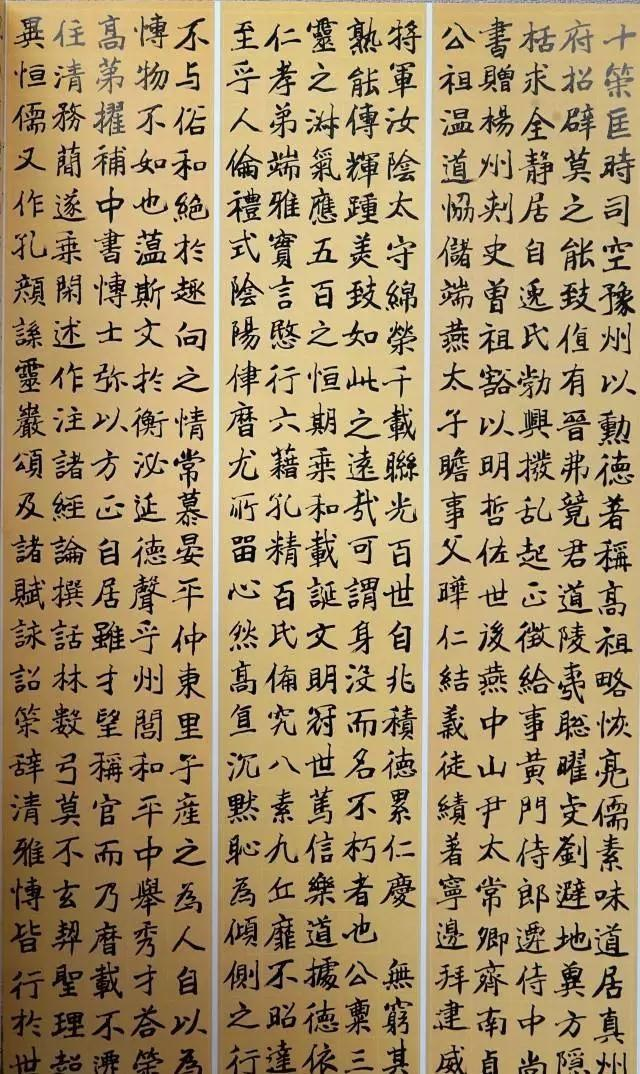 十策匡時司空豫州以勳德著稱高祖略恢亮儒素味道居真州
府招辟莫之能致值有晉弗竟君道陵夷聡曜虔劉避地冀方隱
括求全靜居自逸氏勃興撥乱起正徵給事黃門侍郎遷侍中尚
書贈楊州刺史曾祖豁以明哲佐世後燕中山尹太常卿齊南貞
公祖温道恊儲端燕太子瞻事父曄仁結義徒績著寧邊拜建威
將軍汝陰太守綿榮千載聯光百世自兆積德累仁慶 無窮其
熟能傳輝踵美致如此之遠哉可謂身沒而名不朽者也公稟三
靈之淋氣應五百之恒期乘和載誕文明冠世篤信樂道據德依
仁孝弟端雅實言愍行六藉孔精百氏備究八素九丘靡不昭達
至乎人倫禮式陰陽律曆尤所留心然高直沉默恥為傾側之行
不与俗和絕於趣向之情常慕晏平仲東里子產之為人自以為
慱物不如也蕰斯文於衡泌延德聲乎州閭和平中舉秀才荅策
高第擢補中書慱士弥以方正自居雖才望稱官而乃曆載不遷
任清務簡遂乘閑述作注諸經論撰話林数弓莫不玄契聖理超
異恒儒又作孔顏誄靈巖頌及諸賦詠詔策辭清雅慱皆行於世